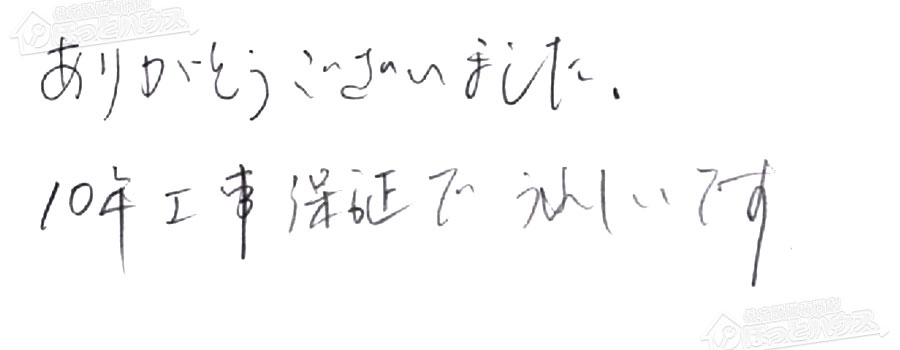 ほっとハウス
ありがとうございました.
10年工事保証で うれしいです
ほっとハウス